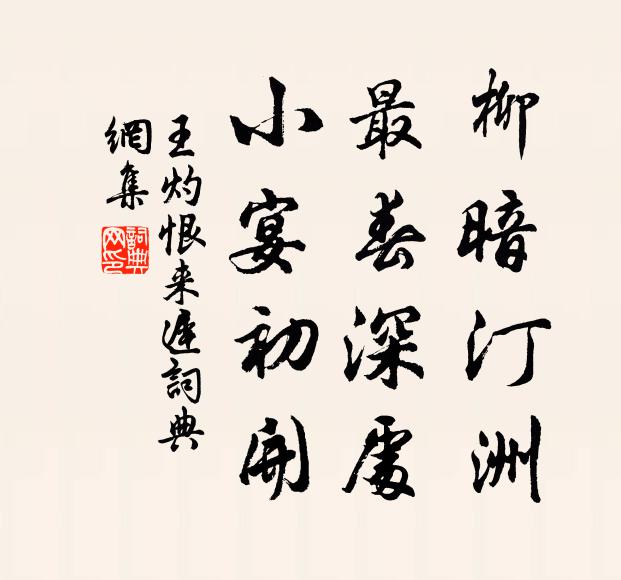 柳暗汀洲
最春深處
小宴初開
王灼恨来遲詞典
網集
詞典网印